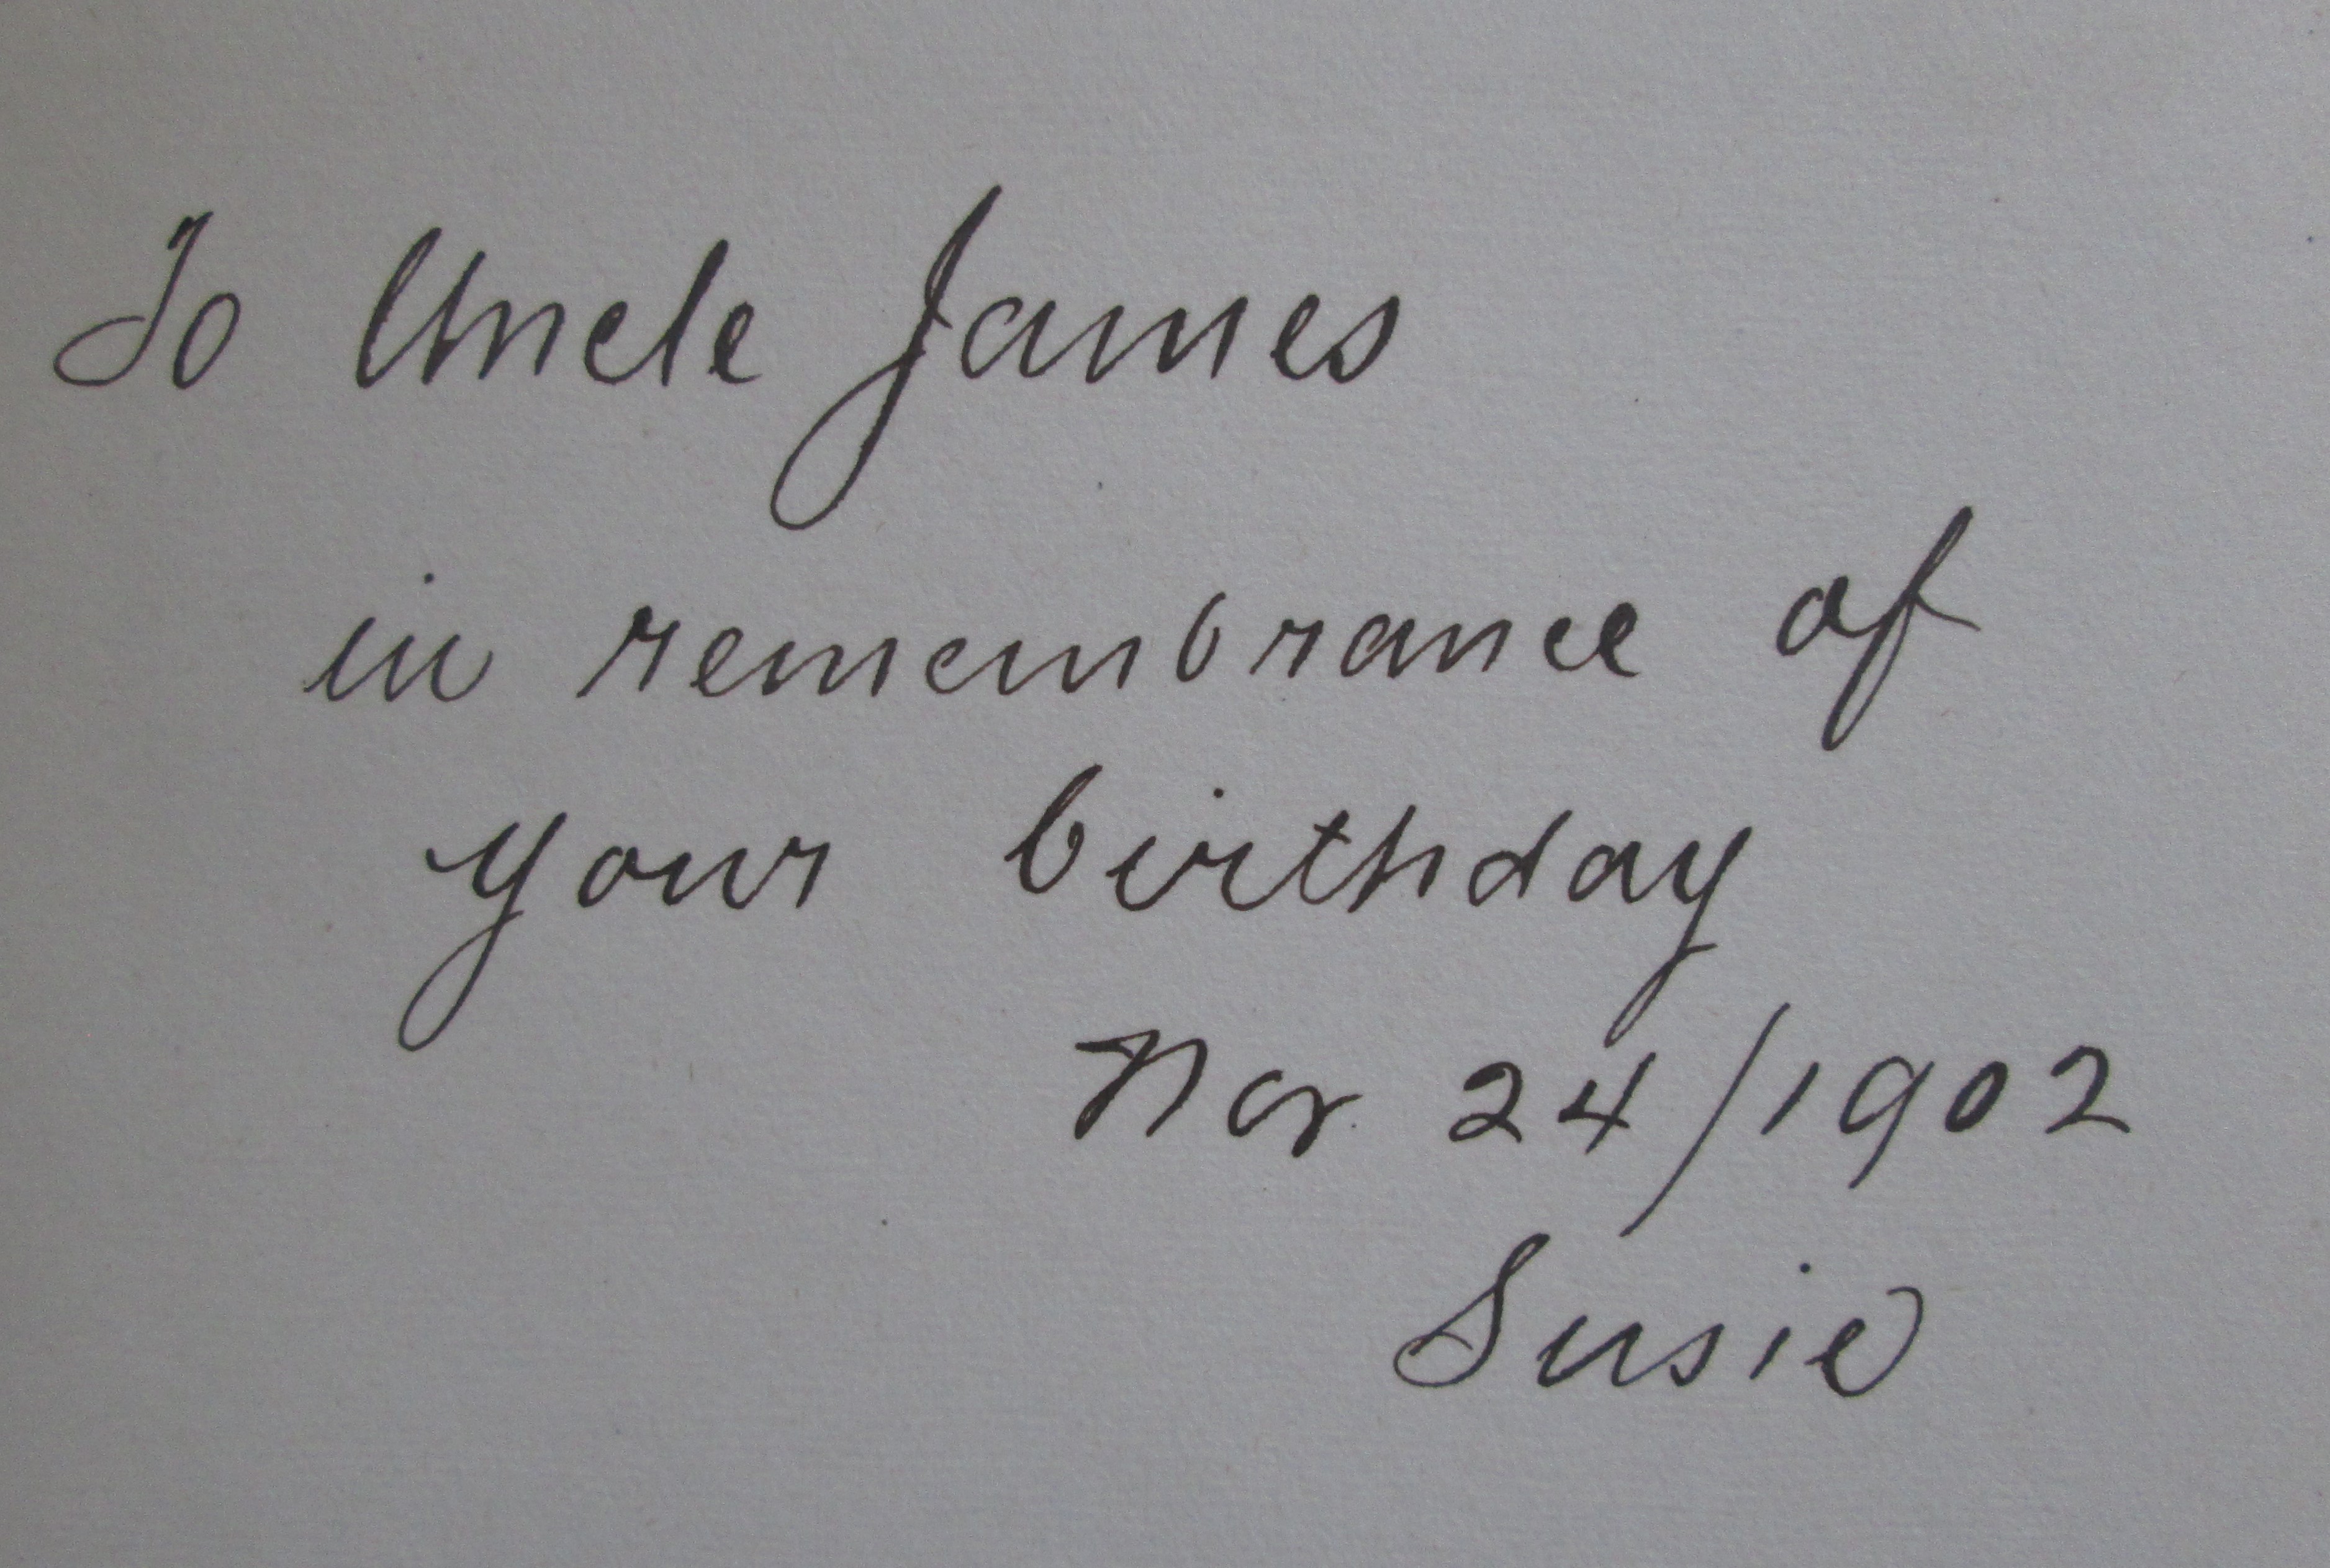 To Uncle James
in remembrance of
your birthday
Nov 24/1902
Susie